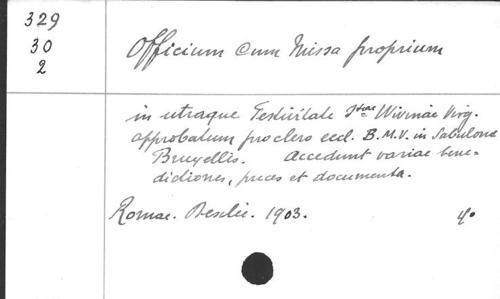 329
30
2
Officium cum Missa proprium
in utraque Festivitate Stae Wivinae Virg.
approbatum pro clero eccl. B.M.V. in Sabulone
Bruxellis. Accedunt variae bene-
dictiones, preces et documenta.
Romae. Desclée. 1903.